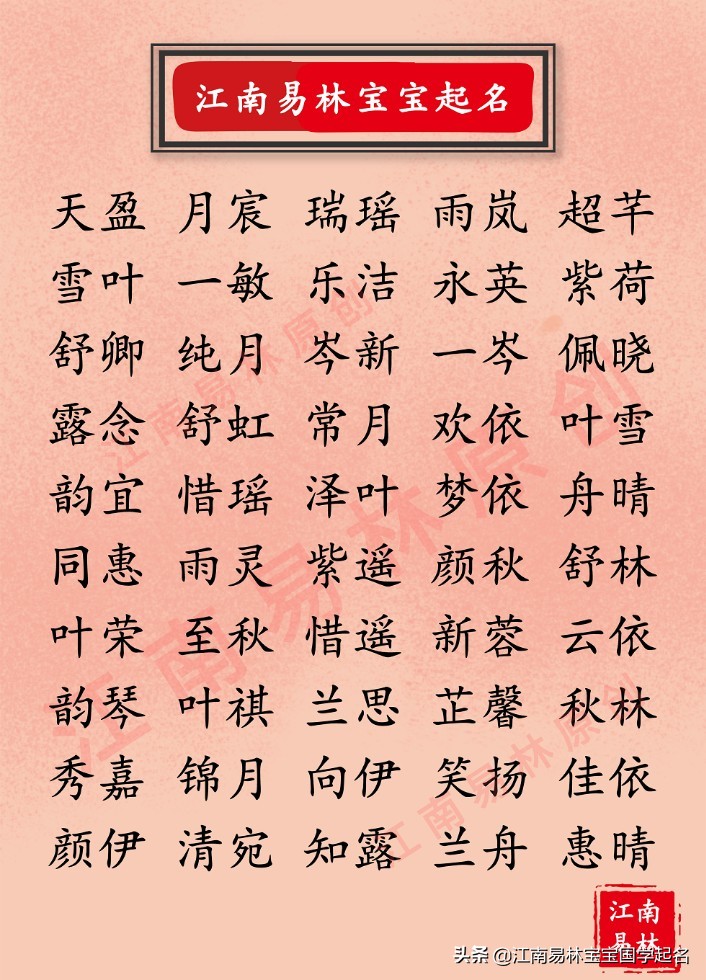 江南易林宝宝起名
天盈 月宸 瑞瑶 雨岚 超芊
雪叶 一敏 乐洁 永英 紫荷
舒卿 纯月 岑新 一岑 佩晓
露念 舒虹 常月 欢依 叶雪
韵宜 惜瑶 泽叶 梦依 舟晴
同惠 雨灵 紫遥 颜秋 舒林
叶荣 至秋 惜遥 新蓉 云依
韵琴 叶祺 兰思 芷馨 秋林
秀嘉 锦月 向伊 笑扬 佳依
颜伊 清宛 知露 兰舟 惠晴
江南易林原创
江南易林原创
江南易林原创
江南
易林
头条 @江南易林宝宝国学起名